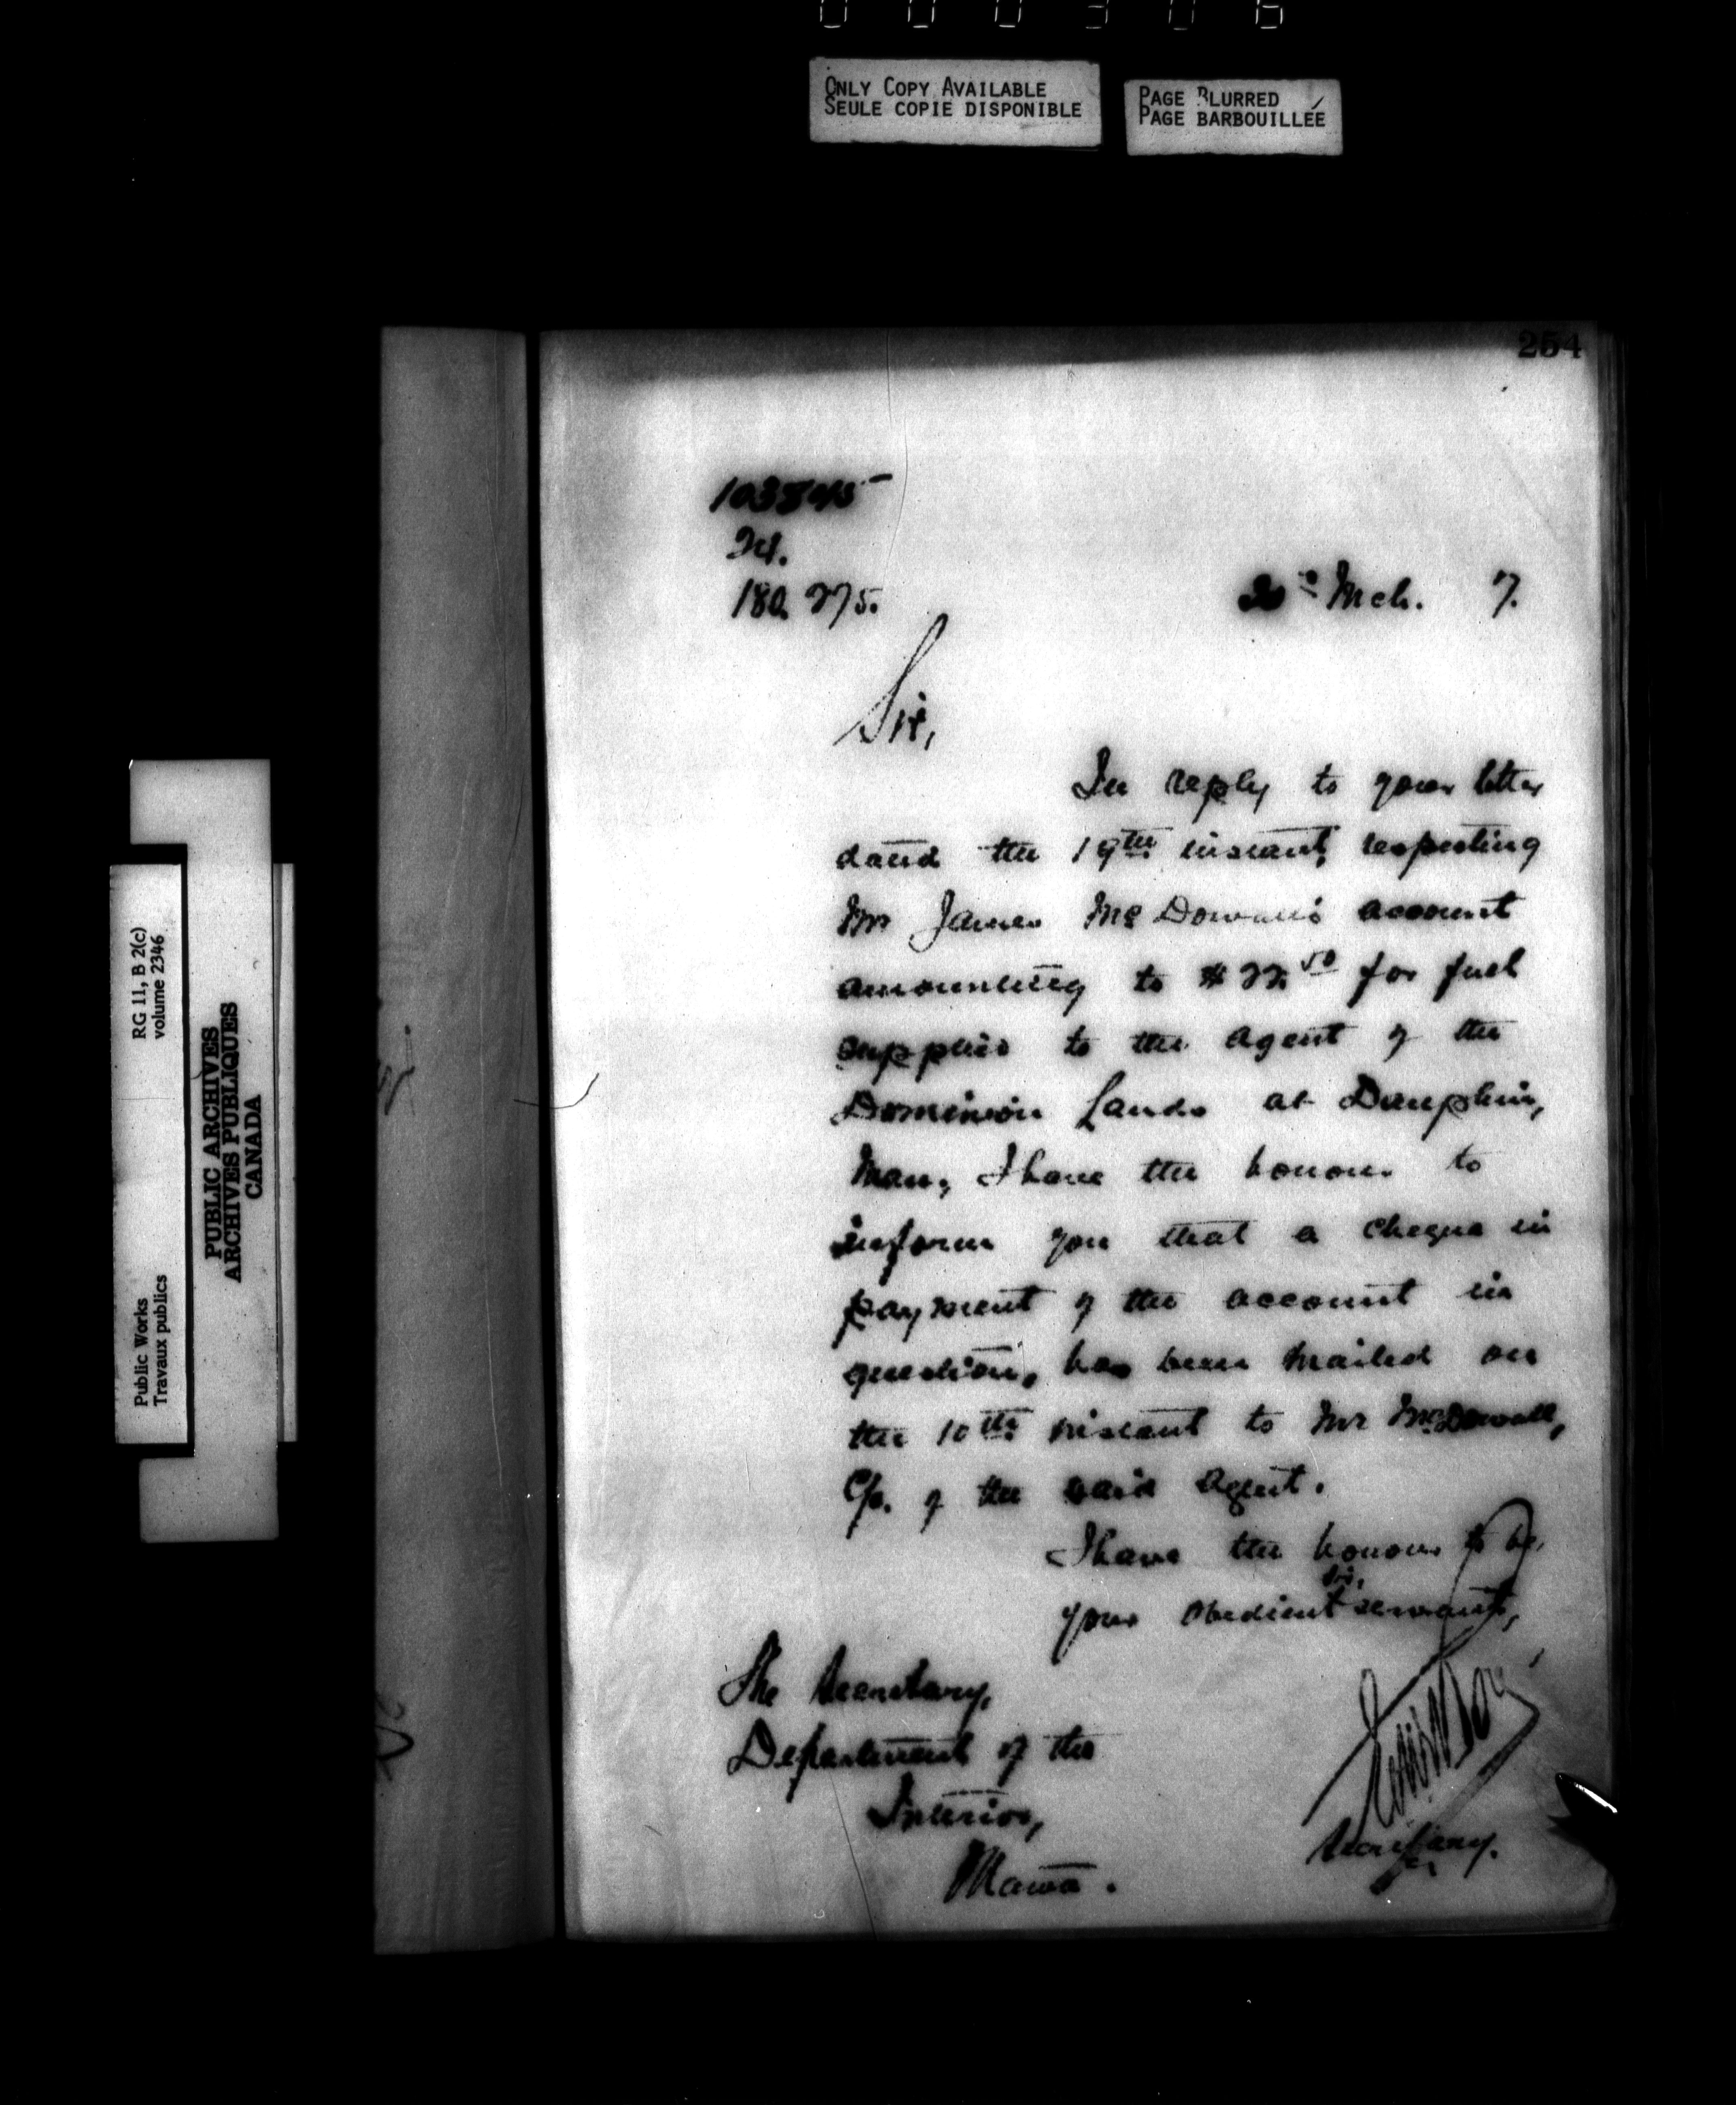 ONLY COPY AVAILABLE
SEULE COPIE DISPONIBLE
PAGE BLURRED
PAGE BARBOUILLÉE
254
180.275.
Mch. 7.
Sir,
In reply to your letter
dated the 19th instant, respecting
Mr James McDowall's account
amounting to $22.50 for fuel
supplied to the agent of the
Dominion Lands at Dauphin,
Man., I have the honour to
inform you that a cheque in
payment of the account in
question, has been mailed on
the 10th instant to Mr McDowall,
C/o. of the said agent.
I have the honour to be,
Sir,
your obedient servant,
The Secretary,
Department of the
Interior,
Ottawa.
Secretary.
RG 11, B 2(c)
volume 2346
PUBLIC ARCHIVES
ARCHIVES PUBLIQUES
CANADA
Public Works
Travaux publics